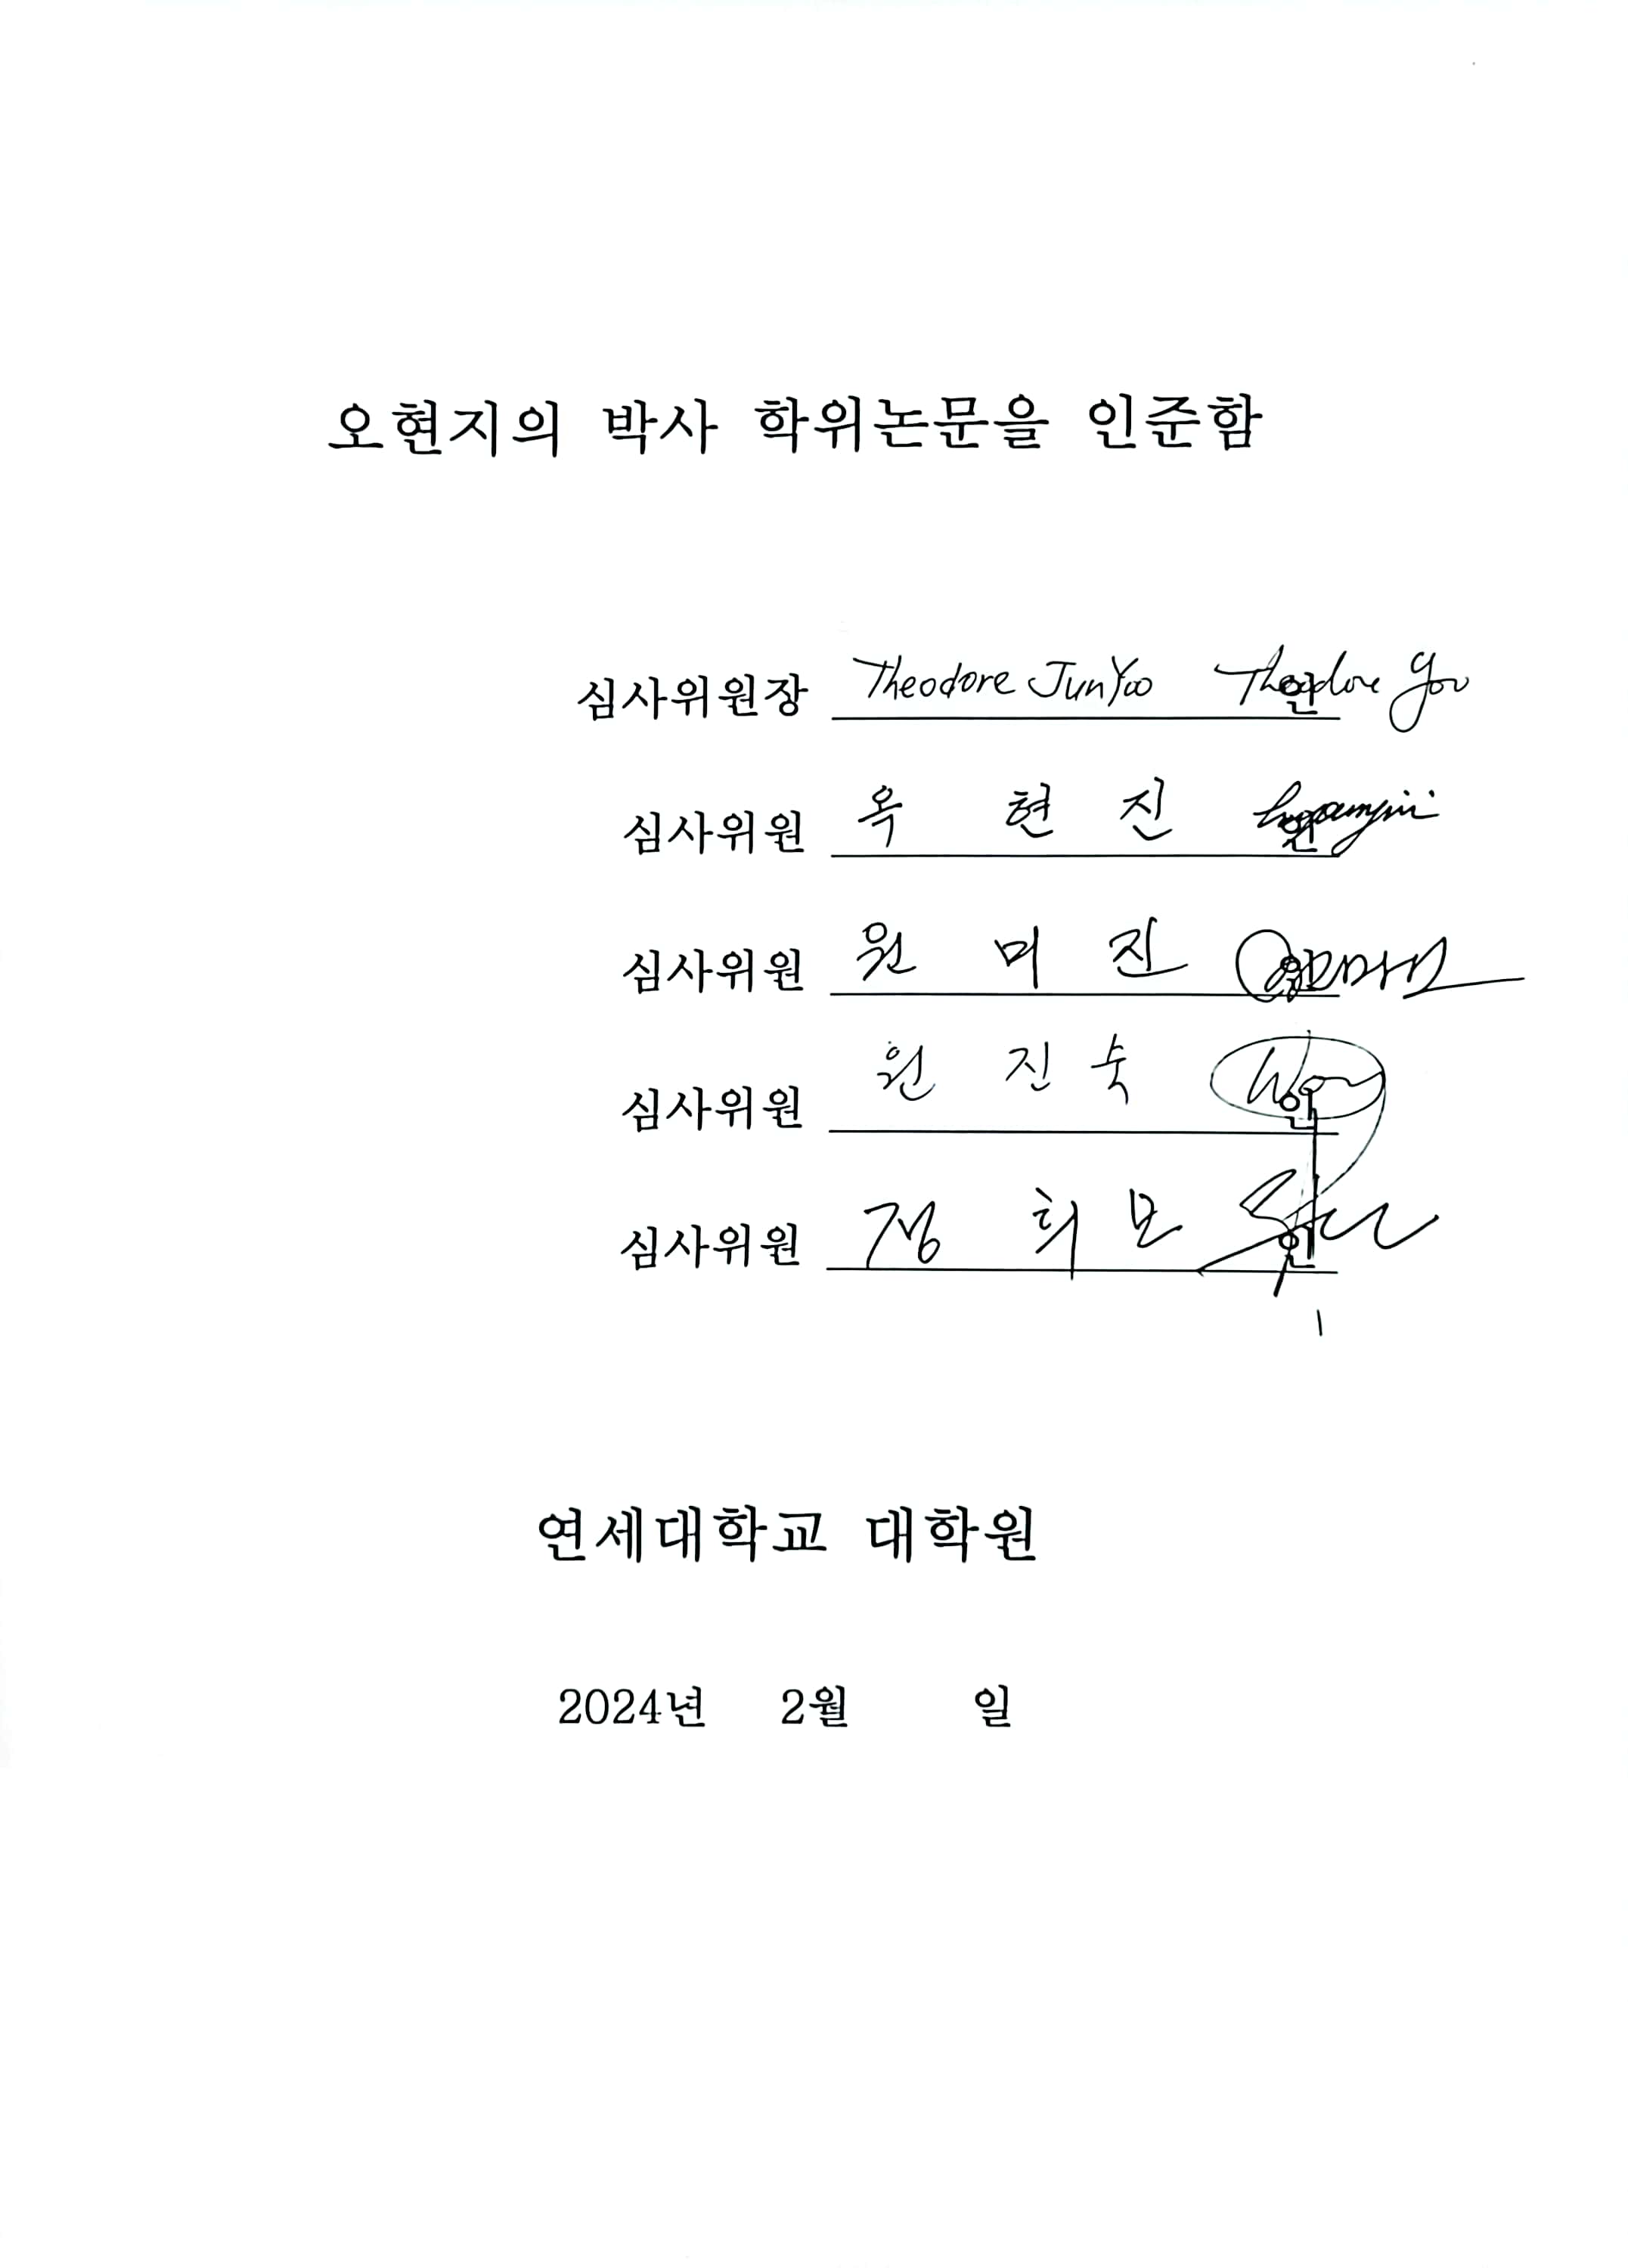 오현지의 박사 학위논문을 인준함
심사위원장 Theodore Jun Yoo Theodore Yoo 인
심사위원 옥 현 진 인
심사위원 원 미 진 인
심사위원 원 진 숙 Won 인
심사위원 정 희 모 인
연세대학교 대학원
2024년 2월 일